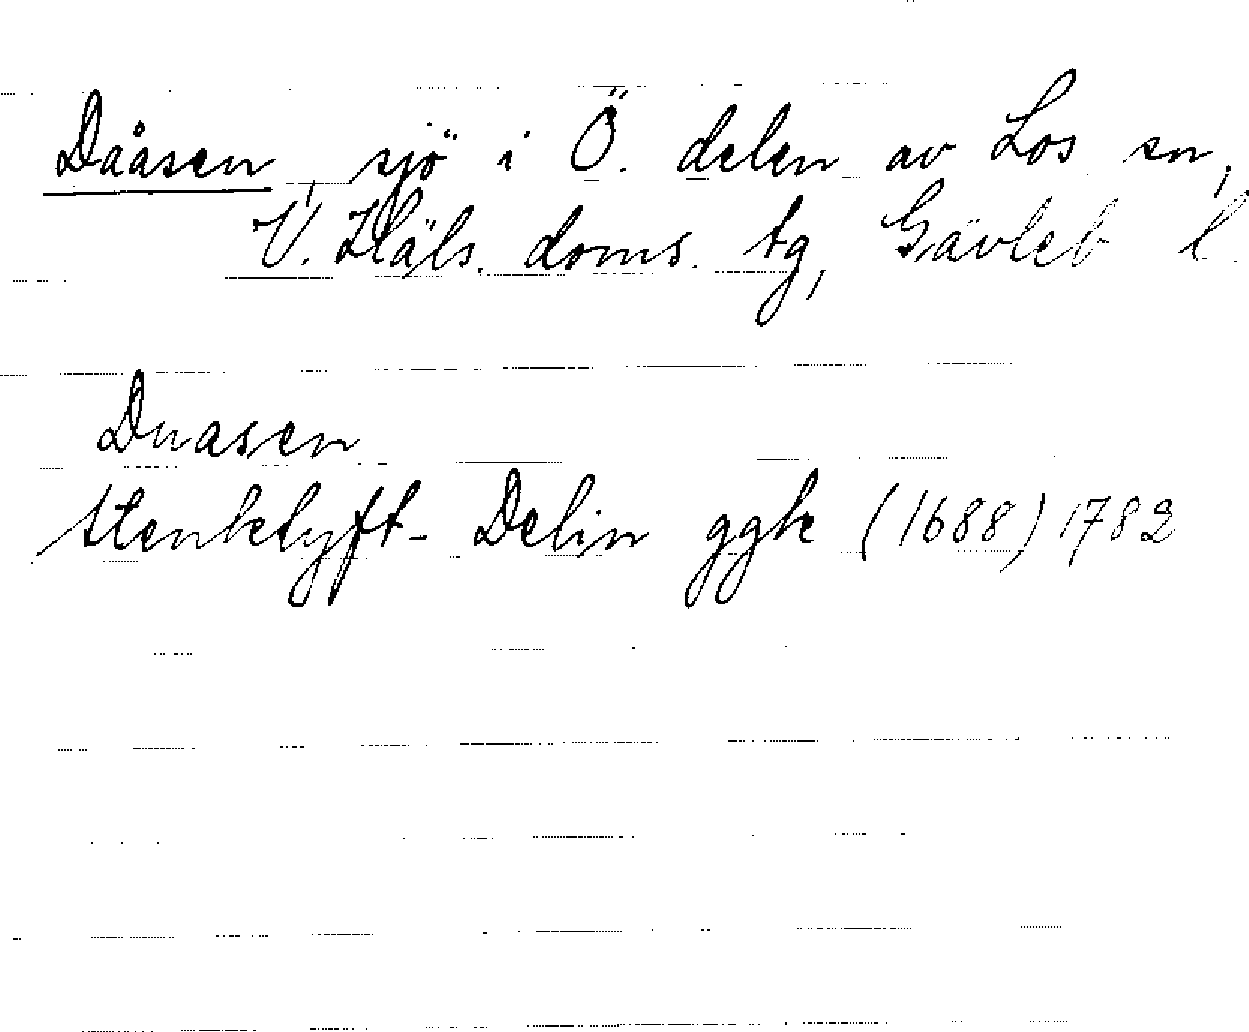 Dåasen, sjö i Ö. delen av Los sn,
V. Häls. doms. tg, Gävleb l.
Duasen
Stenklyft-Delin ggk (1688) 1782